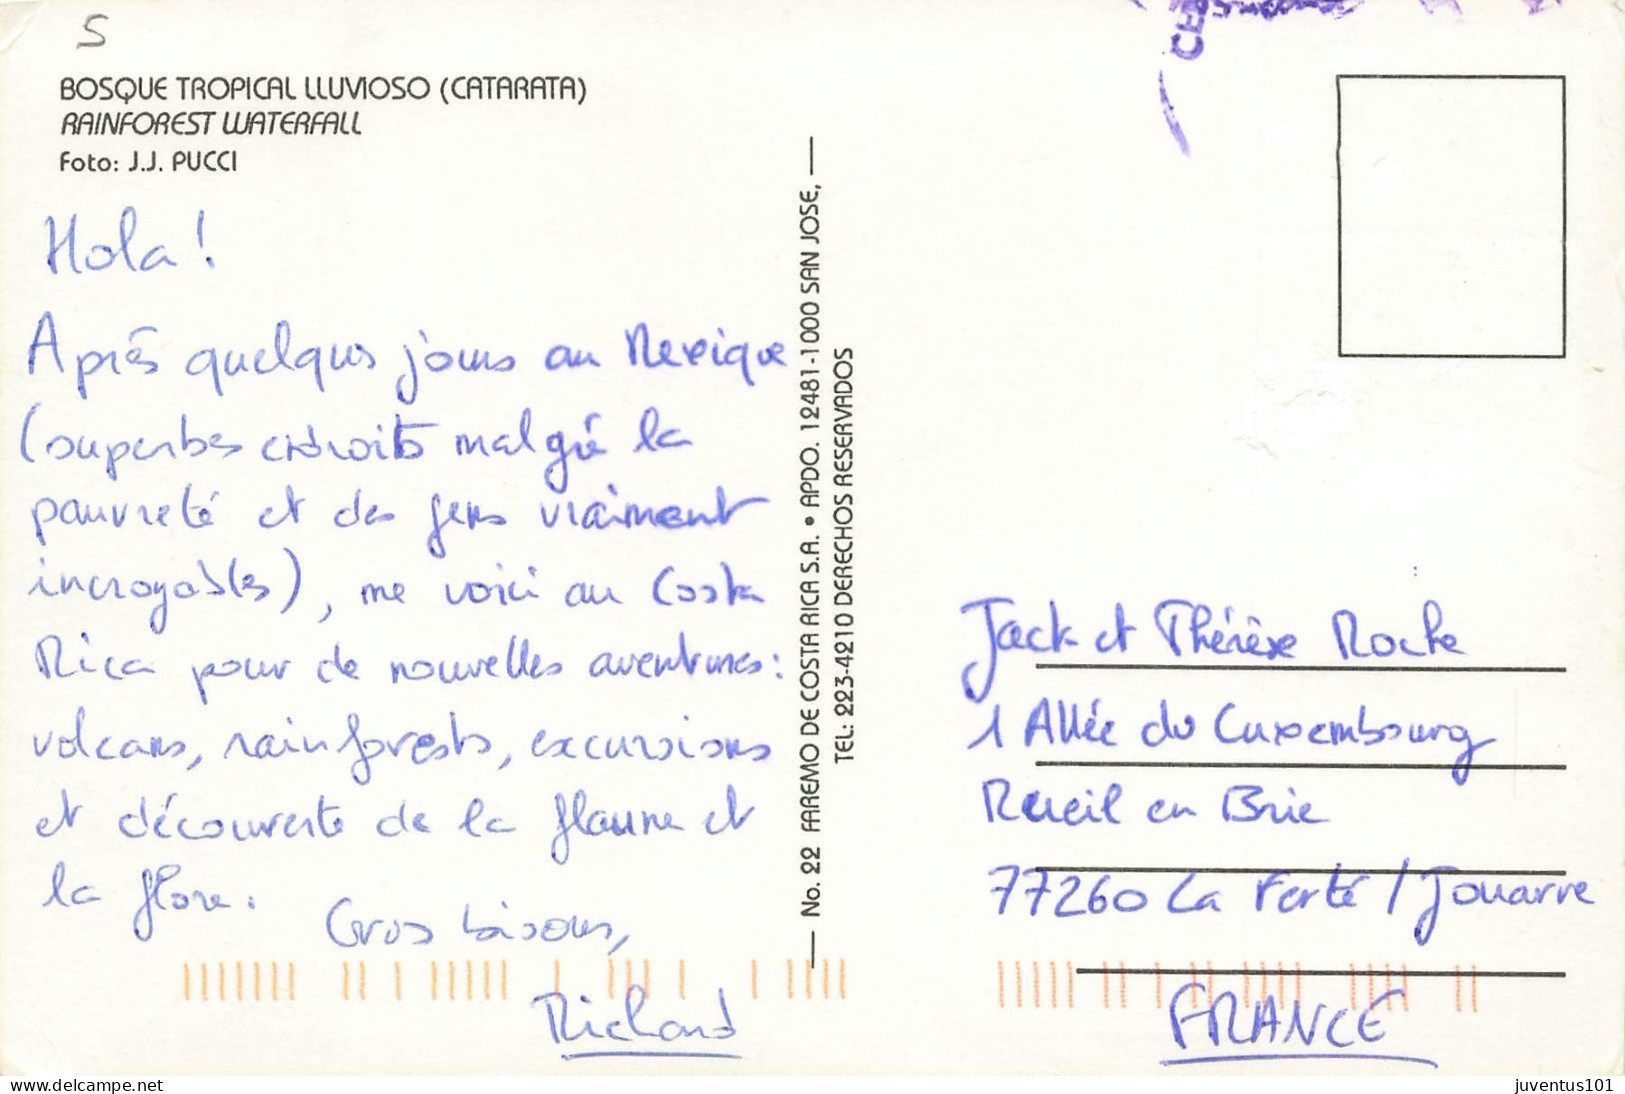 S
BOSQUE TROPICAL LLUVIOSO (CATARATA)
RAINFOREST WATERFALL
Foto: J.J. PUCCI
Hola !
Après quelques jours au Mexique
(superbes endroits malgré la
pauvreté et des gens vraiment
incroyables), me voici au Costa
Rica pour de nouvelles aventures :
volcans, rainforests, excursions
et découverte de la flaune et
la flore.
Gros bisous,
Richard
No. 22 FAREMO DE COSTA RICA S.A. • APDO. 12481-1000 SAN JOSE,
TEL: 223-4210 DERECHOS RESERVADOS
Jack et Thérèse Roche
1 Allée du Luxembourg
Reueil en Brie
77260 La Ferté / Jouarre
FRANCE
www.delcampe.net
juventus101